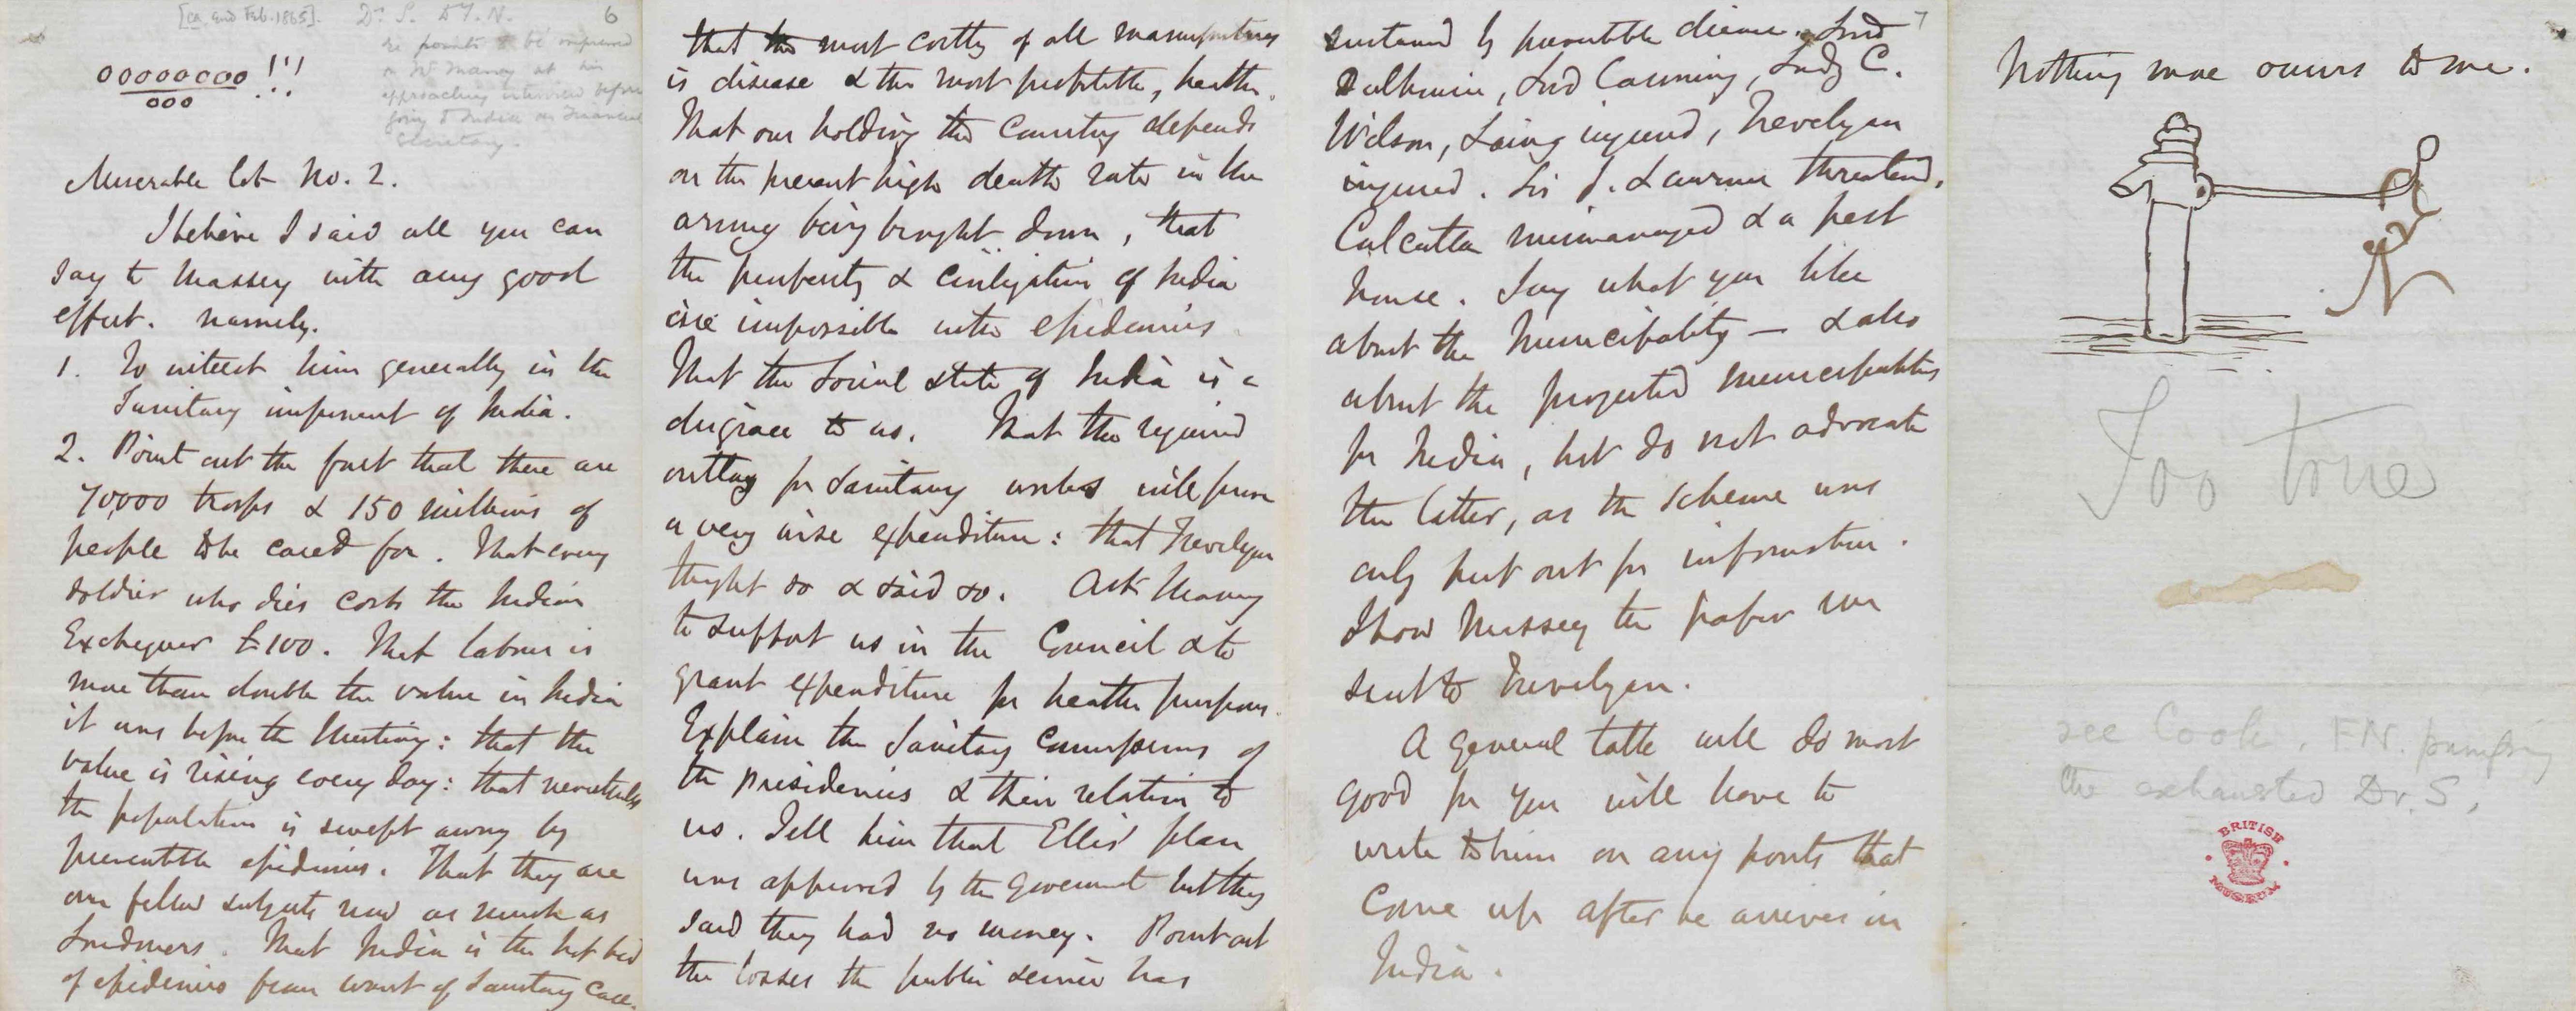 [ca. end Feb. 1865]. Dr. S. to F. N. 6
re points to be impressed
on Mr Massey at his
approaching interview before
going to India as Financial
Secretary.
oooooooo!!!
ooo
Miserable lot No. 2.
I believe I said all you can
say to Massey with any good
effect. namely.
1. To interest him generally in the
Sanitary improvement of India.
2. Point out the fact that there are
70,000 troops & 150 millions of
people to be cared for. That every
soldier who dies costs the Indian
Exchequer £100. That labour is
more than double the value in India
it was before the Mutiny: that the
value is rising every day: that nevertheless
the population is swept away by
preventible epidemics. That they are
our fellow subjects now as much as
Londoners. That India is the hot bed
of epidemics from want of Sanitary care.
that the most costly of all manufactures
is disease & the most profitable, health.
That our holding the Country depends
on the present high death rate in the
army being brought down, that
the prosperity & civilization of India
are impossible with epidemics
That the Social state of India is a
disgrace to us. That the required
outlay for Sanitary works will prove
a very wise expenditure: that Trevelyan
thought so & said so. Ask Massey
to support us in the Council & to
grant expenditure for health purposes.
Explain the Sanitary Commissions of
the presidencies & their relation to
us. Tell him that Ellis' plan
was approved by the Government but they
said they had no money. Point out
the losses the public service has
7
sustained by preventible disease. Lord
Dalhousie, Lord Canning, Lady C.
Wilson, Laing injured, Trevelyan
injured. Sir J. Lawrence threatened.
Calcutta mismanaged & a pest
house. Say what you like
about the Municipality — & also
about the projected municipalities
for India, but do not advocate
the latter, as the scheme was
only put out for information.
Show Massey the paper we
sent to Trevelyan.
A general talk will do most
good for you will have to
write to him on any points that
come up after he arrives in
India.
Nothing more occurs to me.
Too true
see Cook. F.N. pumping
the exhausted Dr. S.
BRITISH
MUSEUM